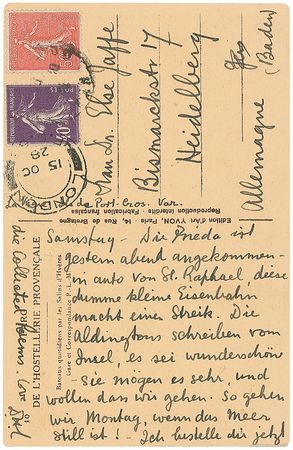 RÉPUBLIQUE FRANÇAISE
POSTES
15 OC
28
Frau Dr. Else Jaffe
Bismarckstr 17
Heidelberg
(Baden)
Allemagne
Edition d'Art YVON, Paris 14, Rue de Bretagne
Reproduction interdite - Fabrication française
de Port-Cros. Var.
DE L'HOSTELLERIE PROVENÇALE
Bateaux quotidiens par les Salins d'Hyères
Gare et Correspondance P. L. M.
Samstag - Die Frieda ist
gestern abend angekommen -
in auto von St. Raphael, diese
dumme kleine Eisenbahn
macht einen Streik. Die
Aldingtons schreiben vom
Insel, es sei wunderschön
- Sie mögen es sehr, und
wollen dass wir gehen. So gehen
wir Montag, wenn das Meer
still ist! - Ich bestelle dir jetzt
die